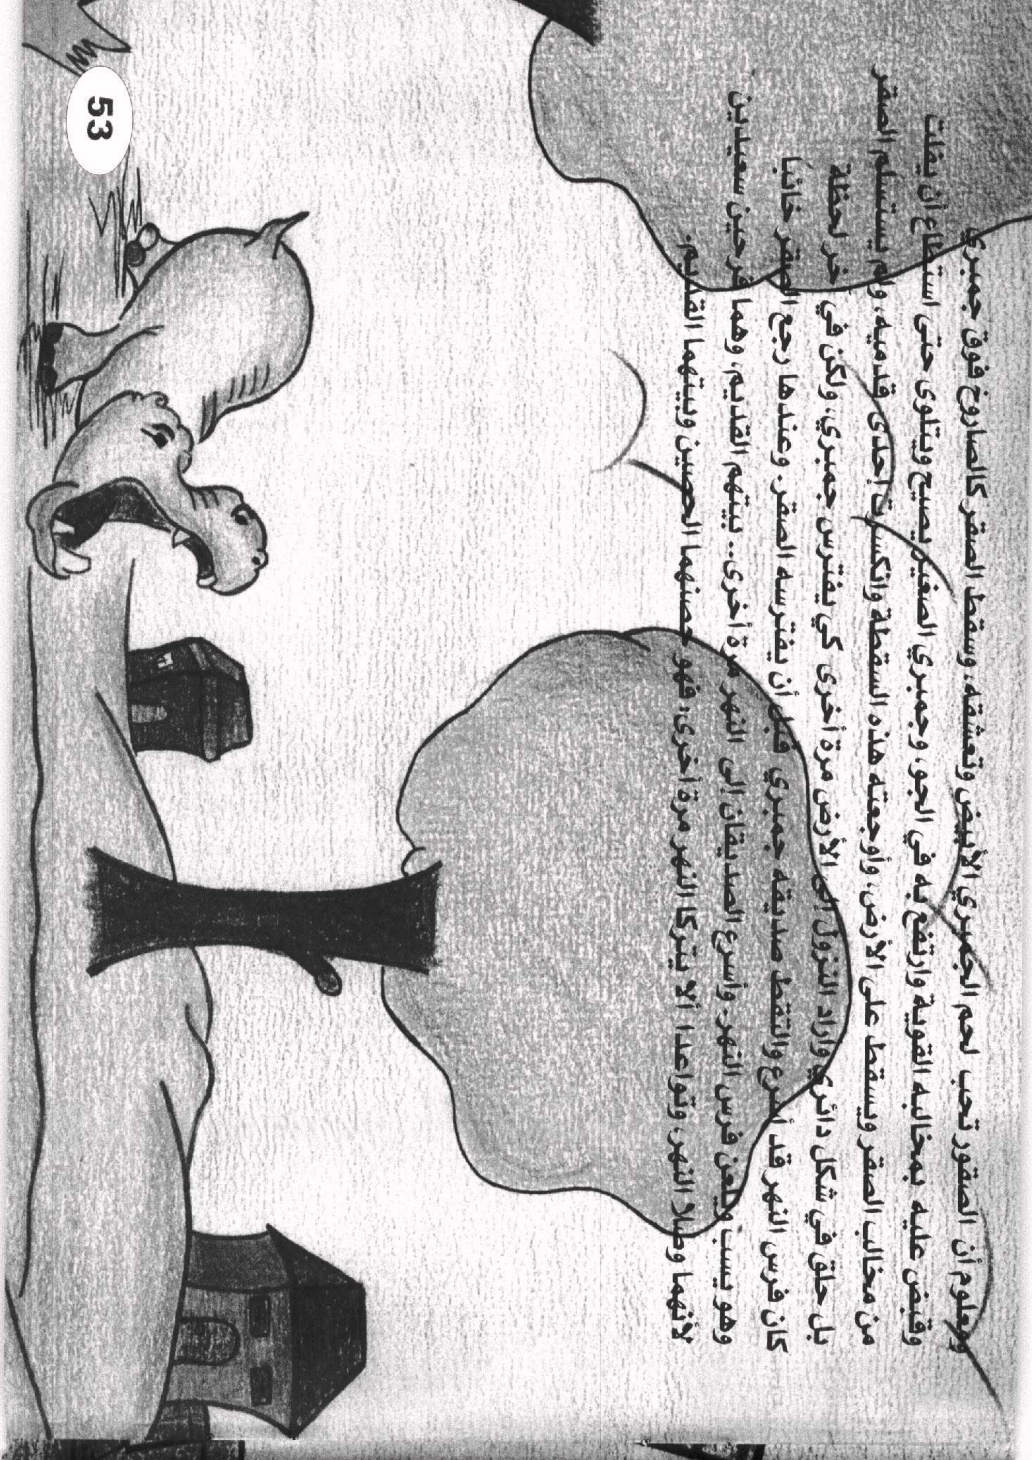 ومعلوم أن الصقور تحب لحم الجمبري الأبيض وتعشقه، وسقط الصقر كالصاروخ فوق جمبري
وقبض عليه بمخالبه القوية وارتفع به في الجو، وجمبري الصغير يصيح ويتلوى حتى استطاع أن يفلت
من مخالب الصقر ويسقط على الأرض، وأوجعته هذه السقطة وانكسرت إحدى قدميه، ولم يستسلم الصقر
بل حلق في شكل دائري وأراد النزول إلى الأرض مرة أخرى كي يفترس جمبري، ولكن في آخر لحظة
كان فرس النهر قد أسرع والتقط صديقه جمبري قبل أن يفترسه الصقر. وعندها رجع الصقر خائبا
وهو يسب ويلعن فرس النهر. وأسرع الصديقان إلى النهر مرة أخرى.. بيتهم القديم، وهما فرحين سعيدين
لأنهما وصلا النهر، وتواعدا ألا يتركا النهر مرة أخرى، فهو حصنهما الحصين وبيتهما القديم.
53